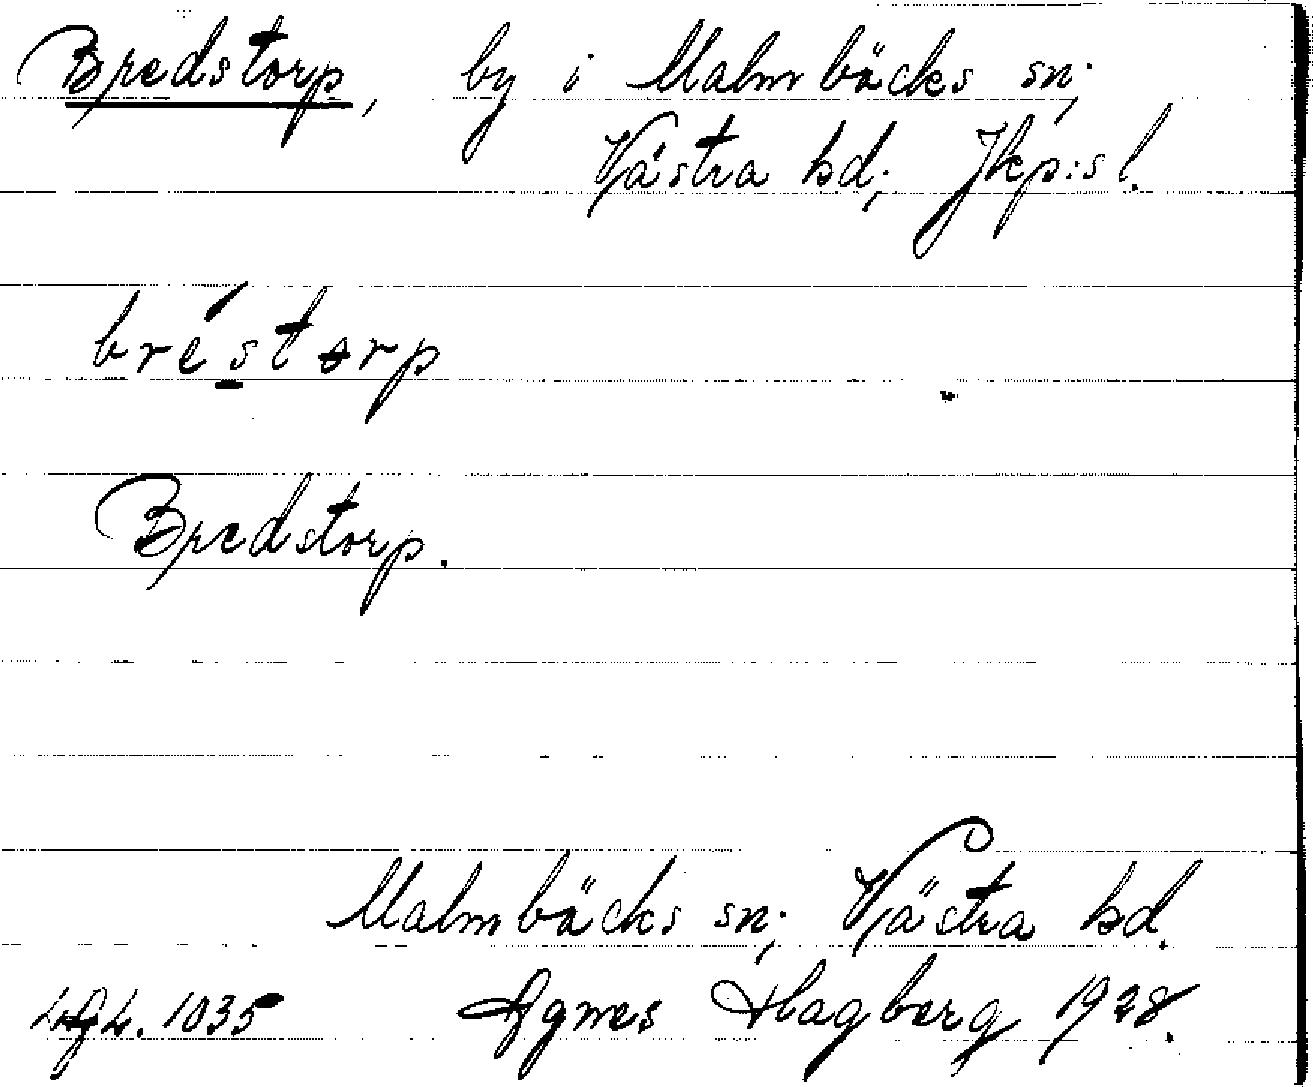 Bredstorp, by i Malmbäcks sn;
Västra hd; Jkp:s l.
bréstorp
Bredstorp.
Malmbäcks sn; Västra hd.
1035 Agnes Hagberg 1928.